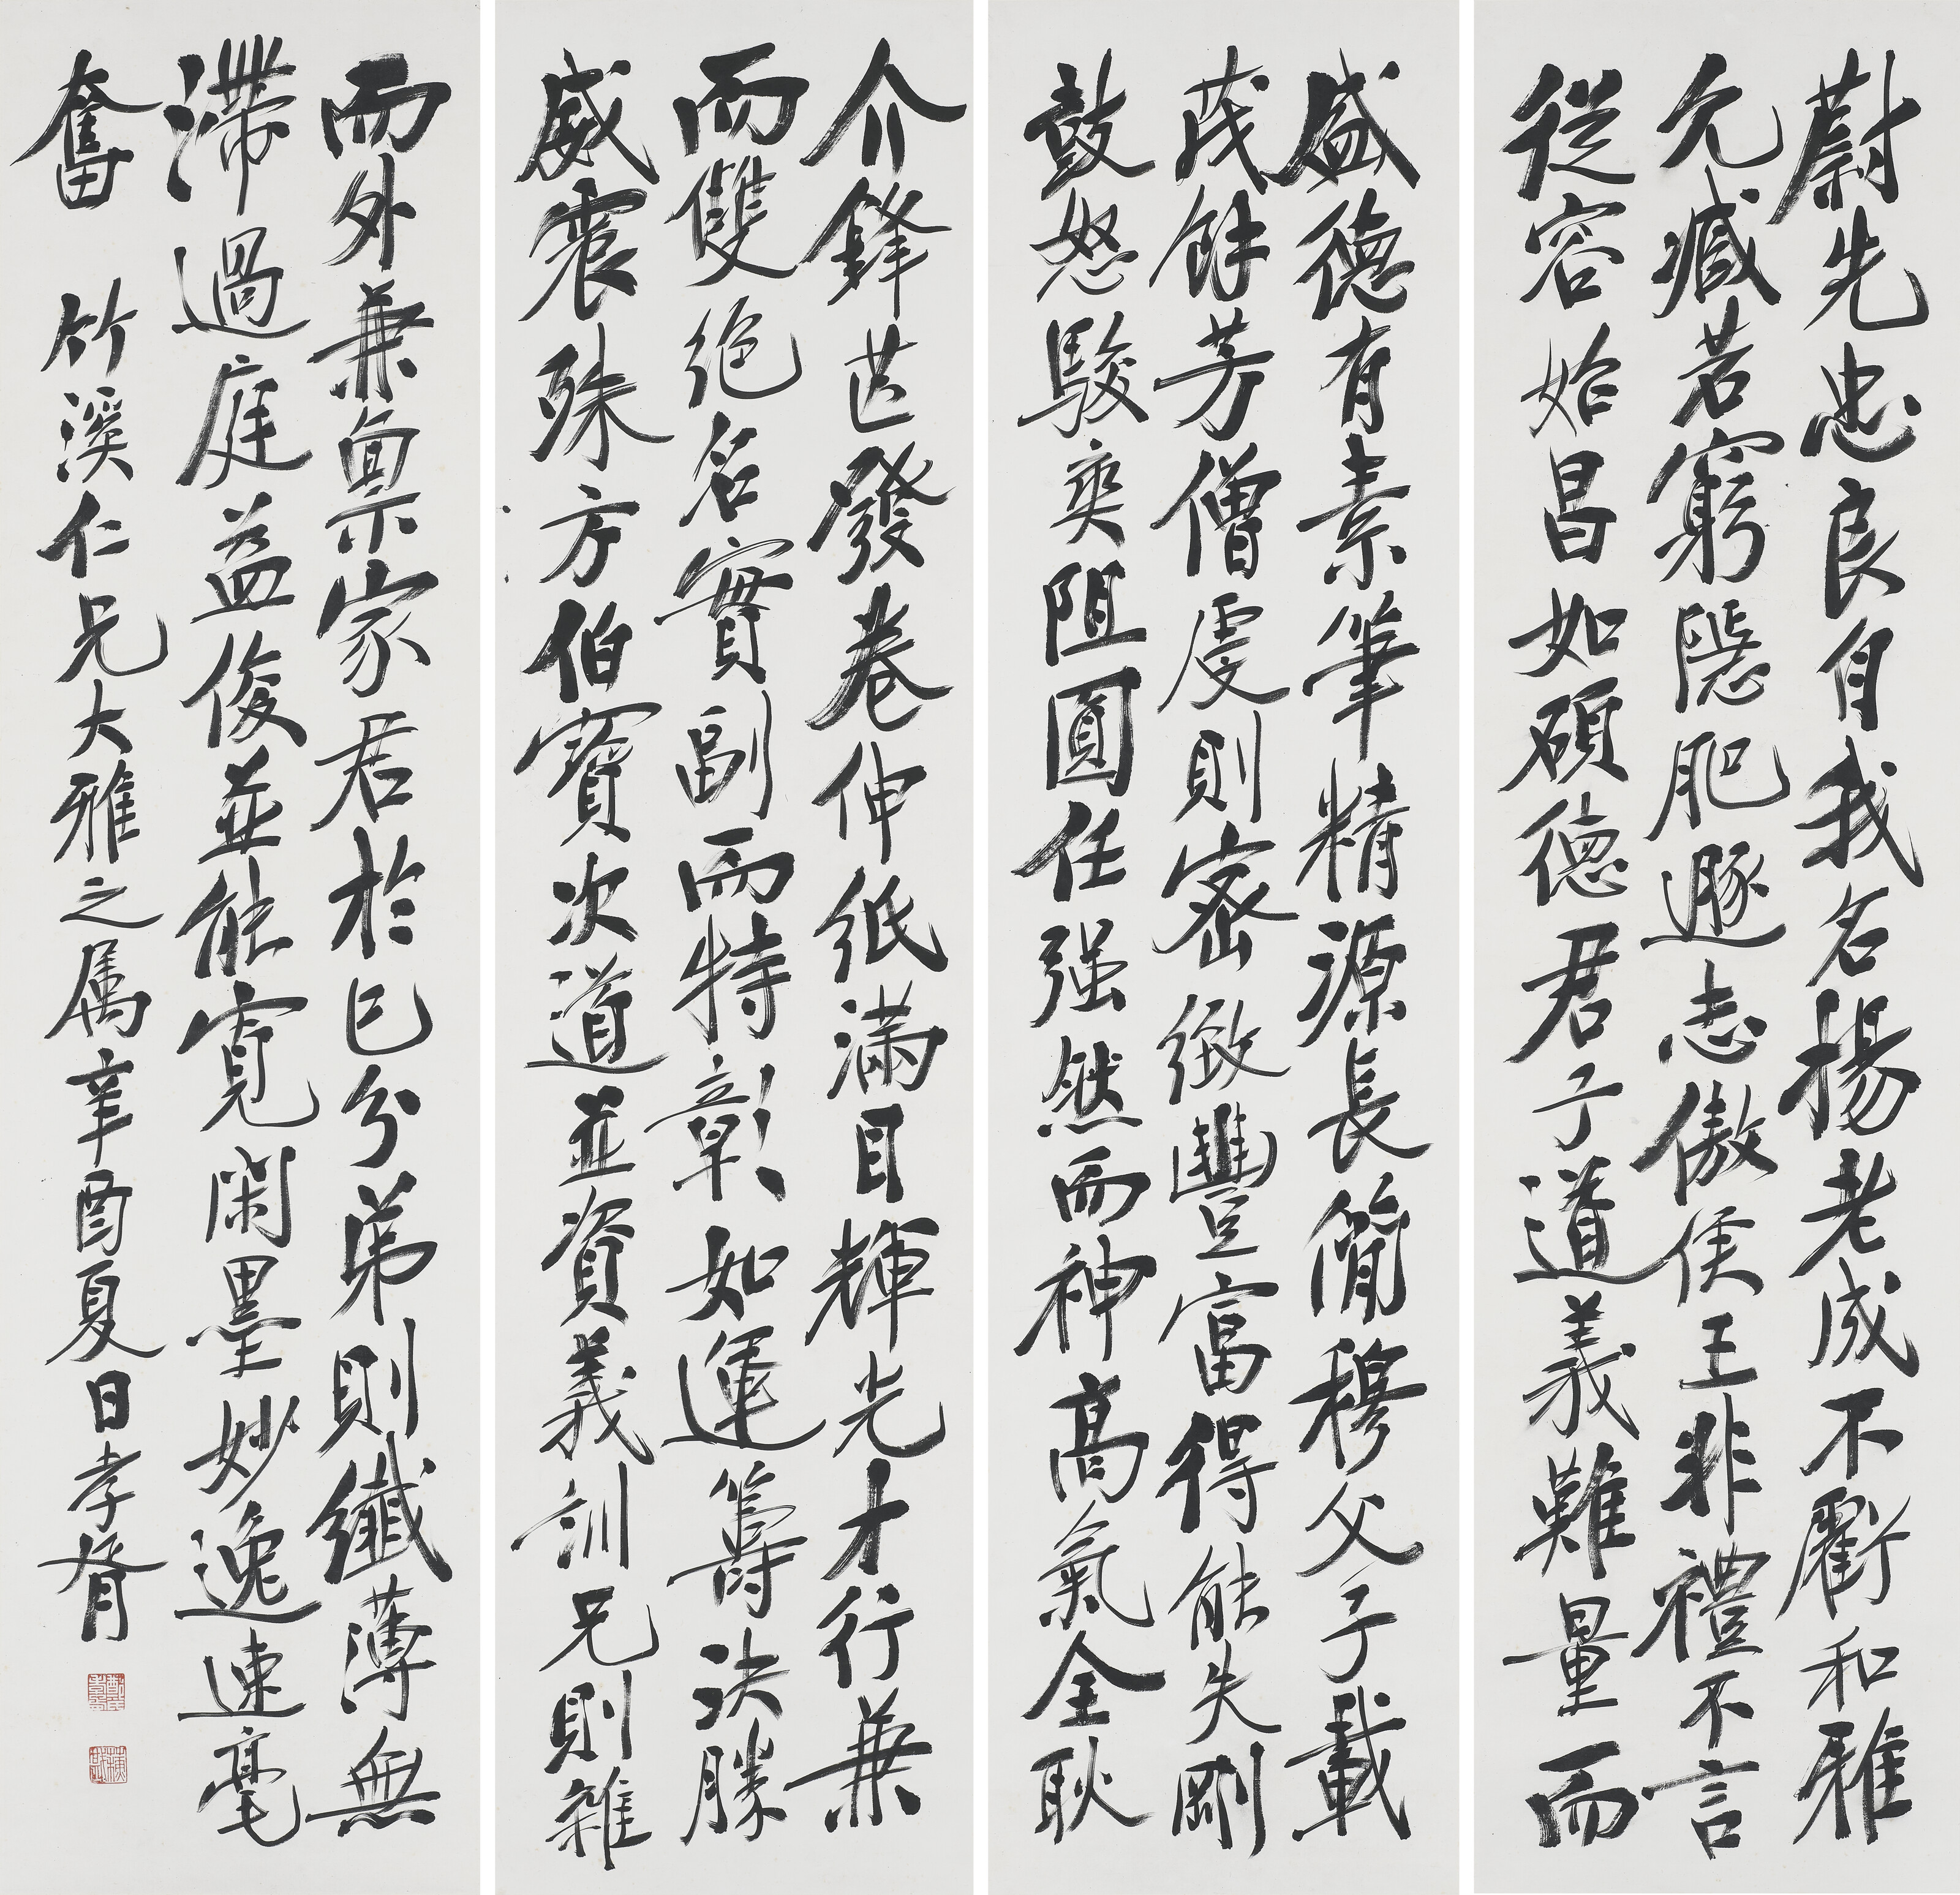 蔚先忠良自我名揚老成不虧和雅
允臧若窮隱肥遯志傲侯王非禮不言
從容始昌如碩德君子道義難量而
盛德有素筆精源長簡穆父子載
茂餘芳僧虔則密緻豐富得能失剛
鼓怒駿爽阻圓任强然而神高氣全耿
介鋒芒發卷伸紙滿目輝光才行兼
而雙絶名實副而特彰如運籌決勝
威震殊方伯寶次道並資義訓兄則雜
而外兼稟家君於已分弟則纖薄無
滯過庭益俊並能寬閑墨妙逸速毫
奮 竹溪仁兄大雅之属辛酉夏日孝胥